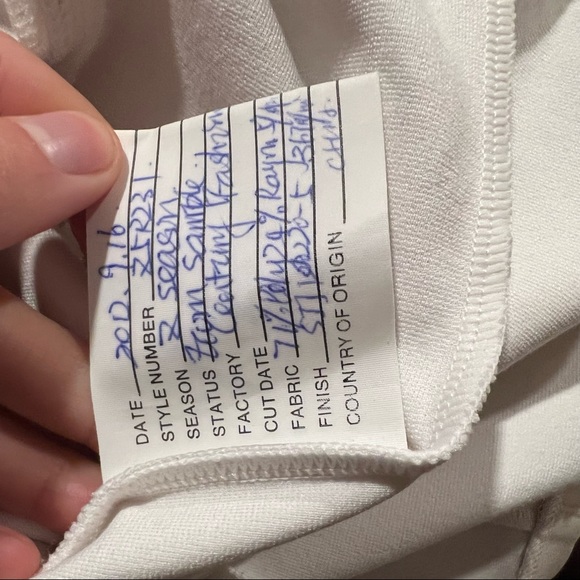 DATE 2012. 9. 16
STYLE NUMBER ZFR231.
SEASON Z season
STATUS sample
FACTORY Century Fashion
CUT DATE
FABRIC 71% Poly 24% Rayon
FINISH
COUNTRY OF ORIGIN CHINA.